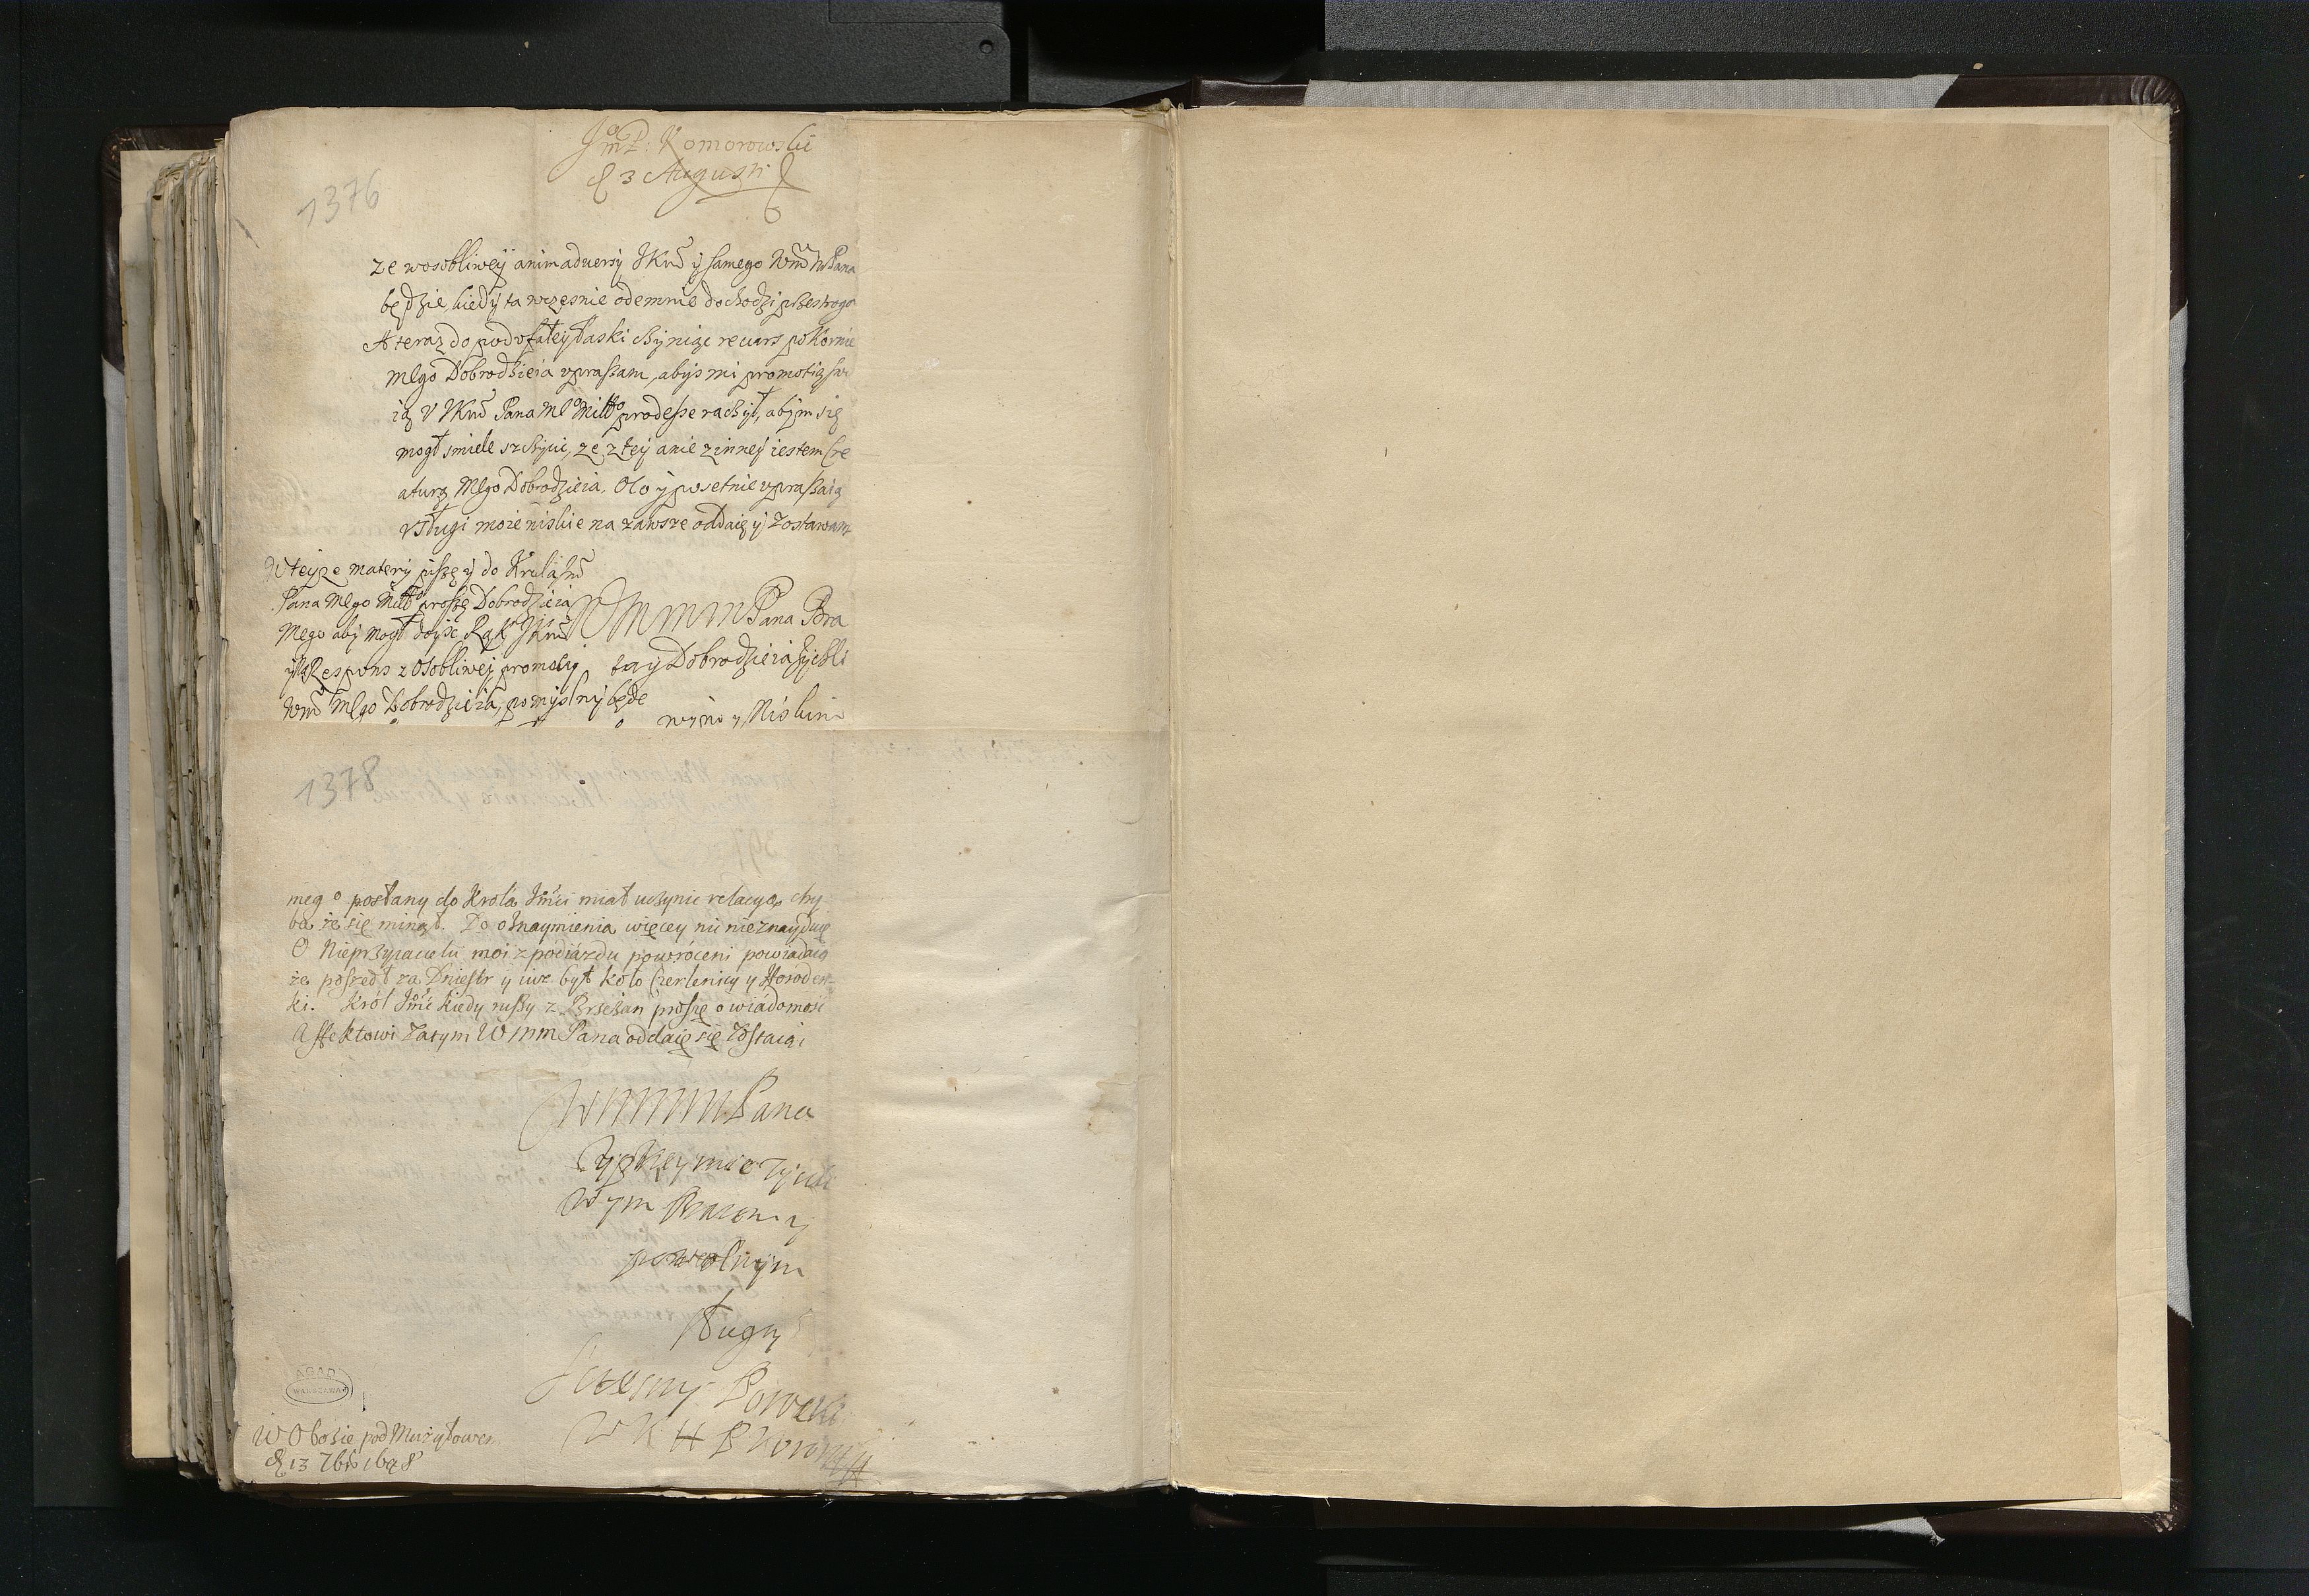 Jmº P: Komorowski
d 3 Augusti
1376
ze wosobliweÿ animaduersÿ JKmć ÿ samego Wmć MPana
będzie, kiedÿ ta wczesnie odemnie dochodzi przestroga
A teraz do podufałeÿ łaski czÿniąc recurs pokornie
Mego Dobrodzieia vpraszam, abÿs mi promotią sw
ią V JKmć Pana Mº Miłłº prodesse raczÿł, abÿm się
mogł smiele szczÿcic, ze z teÿ a nie z inneÿ iestem Cre
aturą Mego Dobrodzieia. Oto ÿ posetnie vpraszaią
vsługi moie niskie na zawsze oddaię ÿ zostawam
W teÿze materÿ piszę ÿ do Krola Jmć
Pana Mego Miłłº proszę Dobrodzieia
Mego abÿ mogł doÿsc Rąk JKmć
ÿ Respons z osobliweÿ promotiÿ
Wmć Mego Dobrodzieia, pomÿslnÿ będe
WMMM Pana Bra
ta ÿ Dobrodzieia Zÿczli
wÿm ÿ Niskim
1378
mego posłany do Krola Jmći miał uczynic relacyą, chy
ba że się minął. Do oznaymienia więcey nic nieznayduię
O Nieprzyiacielu moi z podiazdu powróceni powiadaią
że poszedł za Dniestr y iuz był koło Czerlenicy y Horoden=
ki. Król Jmć kiedy ruszy z Brzeżan proszę o wiádomość
Affektowi zatym WMM Pana oddaię się zostaiąc
WMMM Pana
Uprzeymie Zÿczli
wÿm Bratem ÿ
powolnÿm
sługą
Szczęsny Potocki
W K H P Koronnÿ
AGAD
WARSZAWA
W Obozie pod Mużyłowem
d 13 7bris 1698